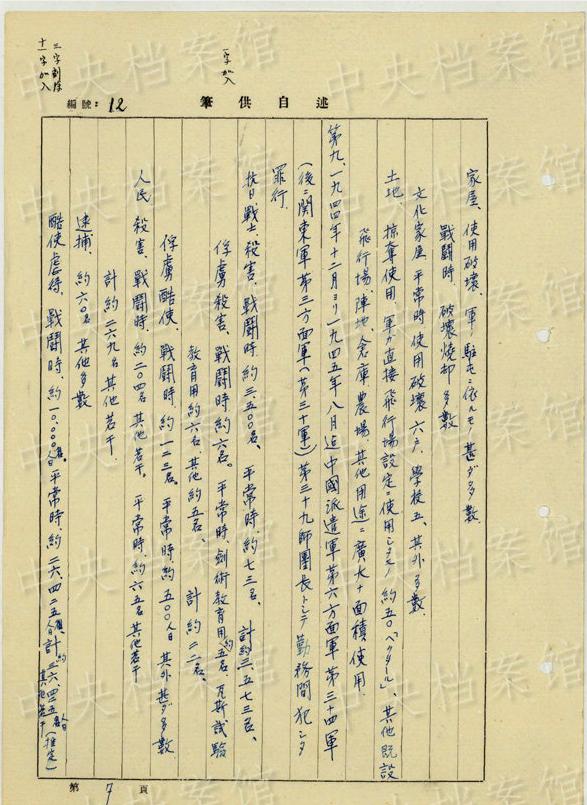 述自供筆
編號：12
一字加入
三字削除
十一字加入
家屋、使用破壊、軍ノ駐屯ニ依ルモノ甚ダ多数
戰闘時、破壊燒却多数
文化家屋、平常時使用破壊六戸、學校五、其外多数、
土地、掠奪使用、軍ガ直接飛行場設定ニ使用シタモノ約五〇「ヘクタール」、其他既設
飛行場、陣地、倉庫、農場、其他用途ニ廣大ナ面積使用
第九、一九四四年十二月ヨリ一九四五年八月迄中國派遣軍第六方面軍第三十四軍
(後ニ関東軍第三方面軍(第三十軍))第三十九師團長トシテ勤務間犯シタ
罪行、
抗日戰士、殺害、戰闘時、約三、五〇〇名、平常時、約七三名、計約三、五七三名、
俘虜殺害、戰闘時、約六名。平常時、劍術教育用約五名、瓦斯試驗
教育用約六名、其他約五名、計約二二名、
俘虜酷使、戰闘時、約一二三名、平常時、約五〇〇人日其外甚ダ多数
人民殺害、戰闘時、約二〇四名其他若干、平常時、約六五名其他若干
計約二六九名其他若干、
逮捕、約六〇名其他多数
酷使虐待、戰闘時、約一〇、〇〇〇名人日平常時、約二六、四二五
第7頁